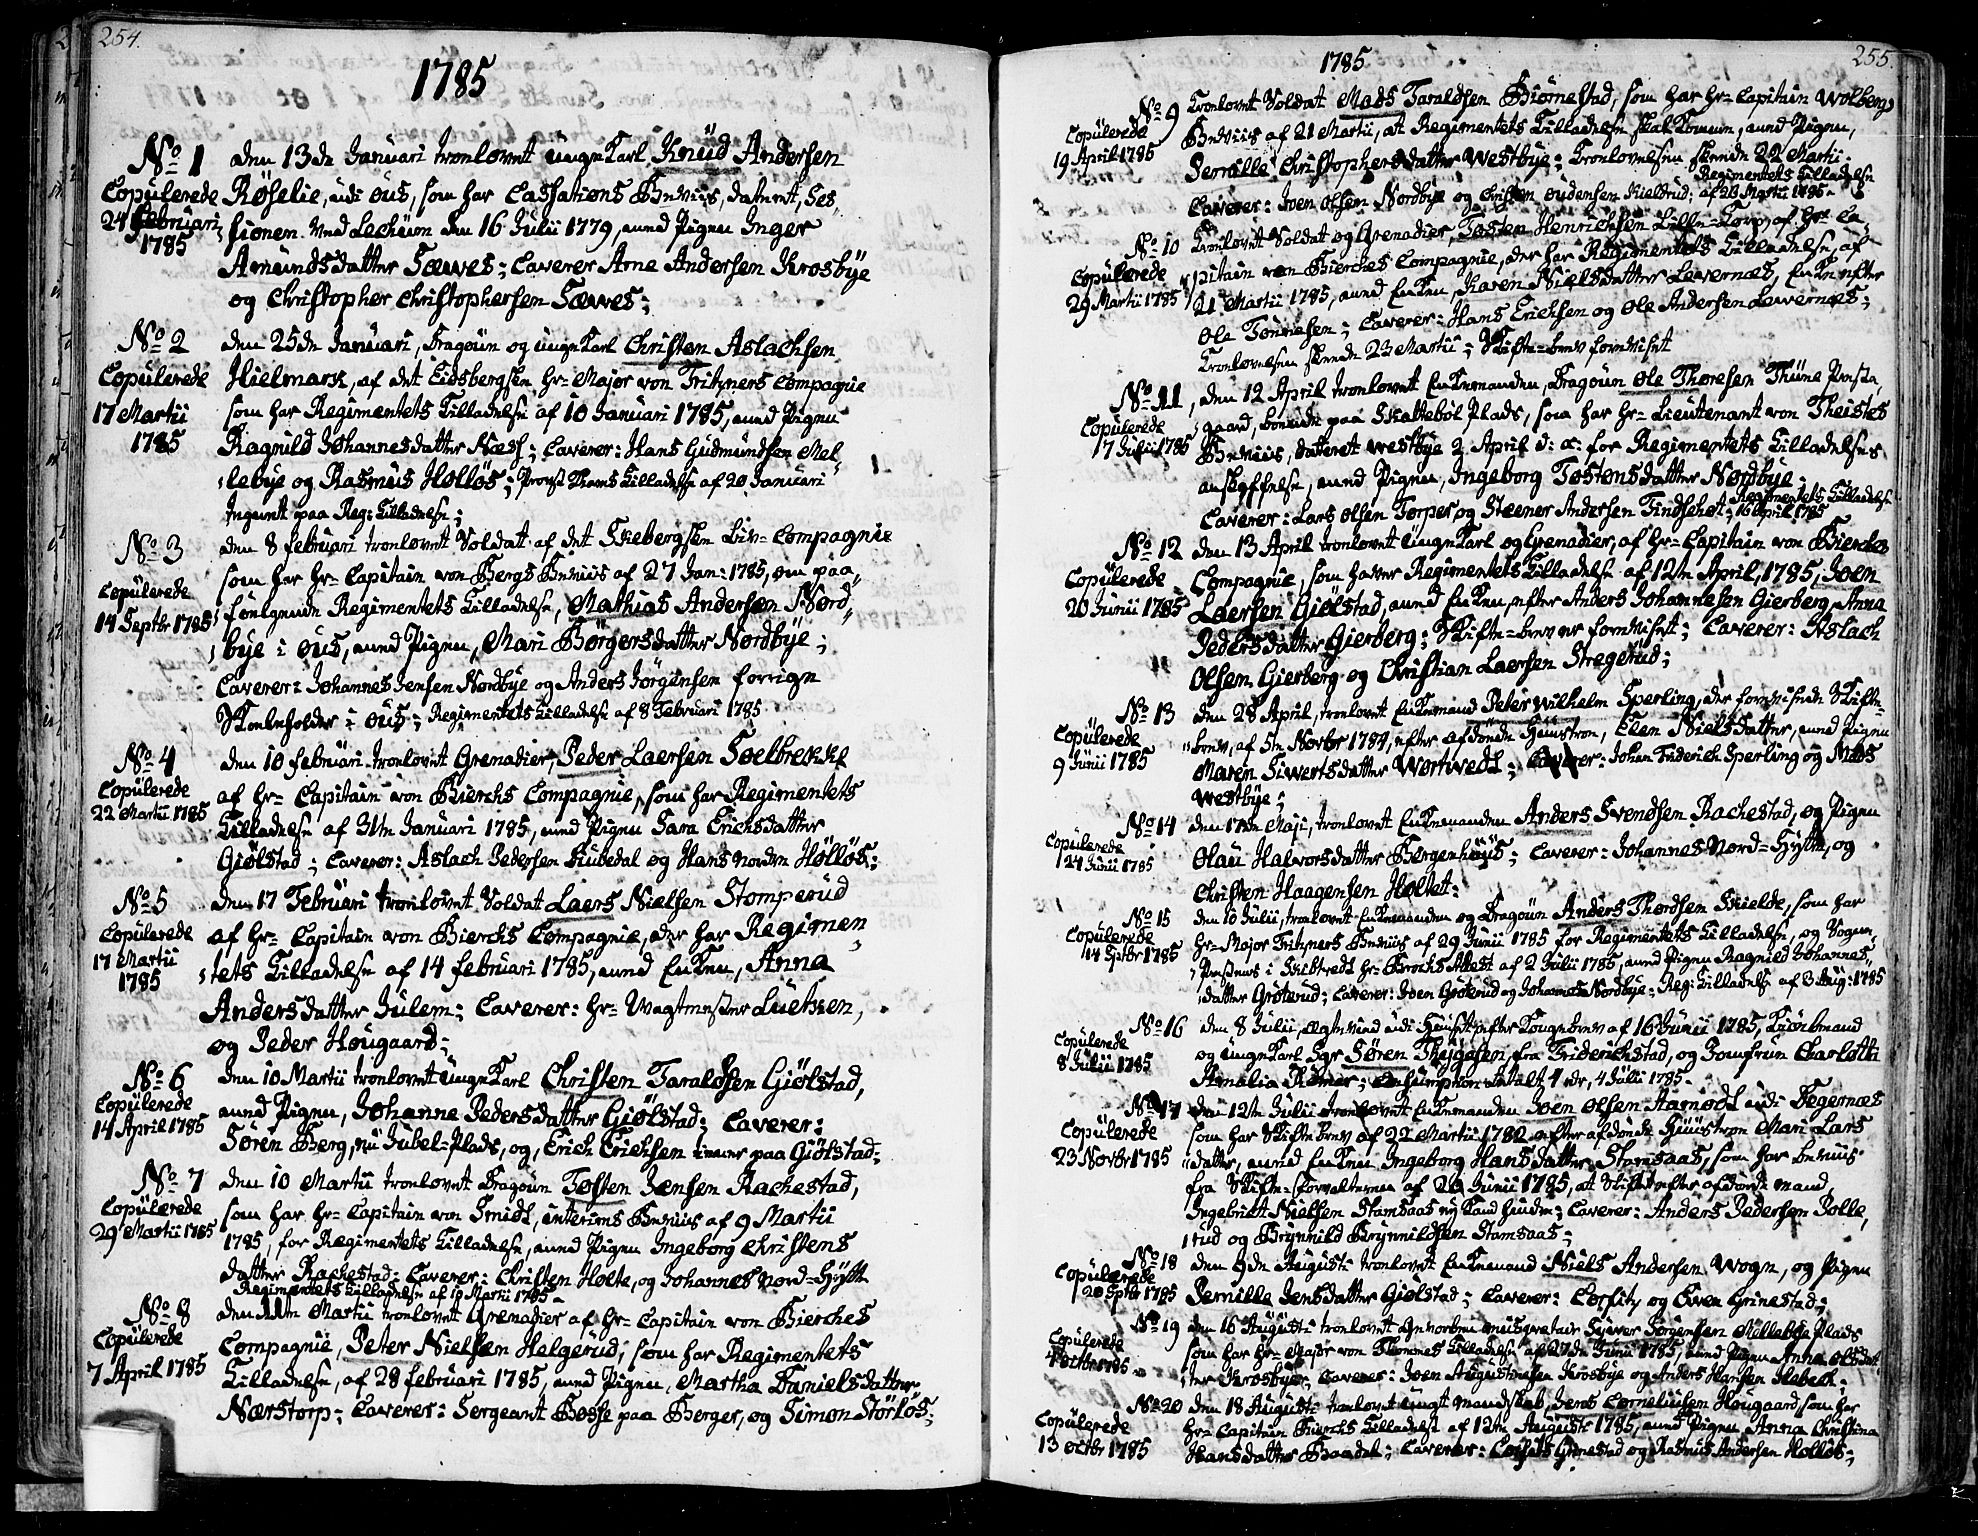 254.
1785
No 1 den 13de Januari trolovet ungeKarl Knud Andersen
Copulerede Røselie, udi øus, som har Cassations Beviis, datenet, Ses-
24 februari sionen ved Lecheim den 16 Julii 1779, med Pigen Inger
1785 Amundsdatter Sæwes; Caverer Arne Andersen Krosbye
og Christopher Christophersen Sæwes;
No 2 den 25de Januari, Dragoun og ungeKarl Christen Aslachsen
Copulerede Hielmark, af det Eidsbergsche hr= Major von Tritzners Compagnie
17 Martii som har Regimentets Tilladelse af 10 Januari 1785, med Pigen
1785 Ragnild Johannesdatter Næss; Caverer: Hans Gudmundsen Mel-
lebye og Rasmus Holløs; Tilladelse af 20 Januari
paa Reg: Tilladelse;
No 3 den 8 februari trolovet Soldat af det Skiebergsche Liv= Compagnie
som har hr= Capitain von Bergs Beviis af 27 Jan: 1785, om paa-
Copulerede følgende Regimentets Tilladelse, Mathias Andersen Nord-
14 Septbr 1785 bye i øus, med Pigen, Mari Börgersdatter Nordbye;
Caverer: Johannes Jensen Nordbye og Anders Jörgensen forrige
Skoleholder i øus; Regimentets Tilladelse af 8 Februari 1785
No 4 den 10 februari trolovet Grenadier, Peder Laersen Soelbrekke
Copulerede af hr= Capitain von Bierchs Compagnie, som har Regimentets
22 Martii 1785 Tilladelse af 31te Januari 1785, med Pigen Sara Erichsdatter
Giölstad; Caverer: Aslach Pedersen Kubedal og Hans nordre Holløs;
No 5 den 17 Februari trolovet Soldat Laers Nielsen Stomperud
Copulerede af hr= Capitain von Bierchs Compagnie, der har Regimen
17 Martii tets Tilladelse af 14 februari 1785, med Enken, Anna
1785
Andersdatter Julem; Caverer: hr= Wagtmester Luetken,
og Peder Hougaard;
No 6 den 10 Martii trolovet ungeKarl Christen Taraldsen Giölstad,
Copulerede med Pigen, Johanne Pedersdatter Giölstad; Caverer:
14 April 1785 Søren Berg, nu Jubel=Plads, og, Erich Erichsen inner paa Giölstad;
No 7 den 10 Martii trolovet Dragoun Tosten Jensen Rachestad,
Copulerede som har hr= Capitain von Smidt, interims Beviis af 9 Martii
29 Martii 1785 1785, for Regimentets Tilladelse, med Pigen Ingeborg Christens
datter Rachestad: Caverer: Christen Holte, og Johannes Nord=Hytte
Regimentets Tilladelse af 19 Martii 1785
No 8 den 11te Martii trolovet Grenadier af hr= Capitain von Bierches
Copulerede Compagnii, Peter Nielsen Helgerud; som har Regimentets
7 April 1785 Tilladelse, af 28 februari 1785, med Pigen, Martha Danielsdatter
Nærstorp; Caverer: Sergeant Bosse paa Berger, og Simon Störløs;
255
1785
No 9 trolovet Soldat Mads Taraldsen Biørnestad, som har hr= Capitain Wolbergs
Copulerede Beviis af 21 Martii, at Regimentets Tilladelse skal komme, med Pigen,
19 April 1785 Pernille Christophersdatter Westbye: Trolovelsen skeede 22 Martii.
Regimentets Tilladelse
Caverer: Joen Olsen Nordbye og Christen oudensen Kieltrud: af 23 Martii 1785
No 10 trolovet Soldat og Grenadier, Tosten Henrichsen Lille=Torp, af hr= Ca-
Copulerede pitain von Bierches Compagnie, der har Regimentets Tilladelse, af
29 Martii 1785 21 Martii 1785, med Enken, Karen Nielsdatter Lewernæs, Enke efter
Ole Tönniesen; Caverer: Hans Erichsen og Ole Andersen Lewernæs;
trolovelsen skeede 23 Martii; Skifte=brev foreviset
No 11, den 12 April trolovet Enkemanden, Dragoun Ole Thoresen Thune Præste,
Copulerede gaard, boende paa Skatteböl Plads, som har hr= Lieutenant von Theistes
17 Julii 1785 Beviis, dateret Westbye 2 April d: a: for Regimentets Tilladelses
anskaffelse, med Pigen, Ingeborg Tostensdatter Nordbye.
Regimentets Tilladelse
Caverer: Lars Olsen Torper og Steener Andersen Tindseheet; 16 April 1785
No 12 den 13 April trolovet ungeKarl og Grenadier, af hr= Capitain von Bierches
Copulerede Compagnie, som haver Regimentets Tilladelse af 12te April, 1785, Joen
20 Junii 1785 Laersen Giölstad, med Enken, efter Anders Johannesen Gierberg, Anna
Pedersdatter Gierberg; Skifte=brev er forevisset; Caverer: Aslach
Olsen Gierberg og Christian Laersen Stregerud;
No 13 den 28 April, trolovet Enkemand Peter Wilhelm Sperling, der forevisede Skifte-
Copulerede brev, af 5te Novbr 1784, efter afdöde Huustroe, Elen Nielsdatter, med Pigen
9 Junii 1785 Maren Siwertsdatter Wortwedt; Caverer: Johan Friderich Sperling og Mads
Westbye;
No 14 den 17de Maji, trolovet Enkemanden Anders Svendsen Rachestad, og Pigen
Copulerede Olau Halvorsdatter Bergenhuus; Caverer: Johannes Nord=Hytte, og
24 Junii 1785
Christen Haagensen Holtet:
No 15 den 10 Julii, trolovet Enkemanden og Dragoun Anders Thordsen Skielde, som har
Copulerede hr= Major Tritzners Beviis af 29 Junii 1785 for Regimentets Tilladelse, og Sogne-
14 Sptbr 1785 Præstens i Skibtvedt hr= Brochs Attest af 2 Julii 1785, med Pigen Ragnild Johannes-
datter Gröterud; Caverer: Joen Gröterud og Johannes Nordbye; Reg: Tilladelse af 3 Aug: 1785
No 16 den 8 Julii, ægteviede udi Huuset efter Kongebrev af 16 Junii 1785, Kiöbmand
Copulerede og ungeKarl Sgr Søren Thejgasen, fra Friderichstad, og Jomfrue Charlotte
8 Julii 1785 Amalia Römer; Consumption betalt 4 rdr, 4 Julii 1785.
No 17 den 12te Julii trolovet Enkemanden Joen Olsen Aamodt udi Degernæs
Copulerede som har Skifte brev af 22 Martii 1782 efter afdöde Huustroe Mari Lars
23 Novbr 1785 datter, med Enken Ingeborg Hansdatter Stomsaas, som har beviis
fra Skifte=forvalteren af 20 Junii 1785, at Skiftet efter afdöde mand,
Ingebriet Nielsen Stamsaas ; Caverer: Anders Pedersen Polle,
rud og Brynnild Brynnildsen Stamsaas;
No 18 den 9de Augusti trolovet Enkemand Niels Andersen Wogn, og Pigen
Copulerede
20 Sptbr 1785 Pernille Jensdatter Giölstad; Caverer: Corfitz og Ewen Grinestad;
No 19 den 16 Augusti trolovet Sejwer Jorgensen Mellebye Plads
Copulerede som har hr= Major von Thomes Tilladelse af 27de Junii 1785, med Pigen Anna Olsdat
octbr 1785 ter Krosbye; Caverer: Joen Augustinusen Krosbye og Anders Hansen Hebeck.
No 20 den 18 Augusti trolovet ungt mandskab, Jens Corneliusen Hougaard, som har
Copulerede hr= Capitain Bierchs Tilladelse af 12te Augusti 1785, med Pigen Anna Christina
13 octbr 1785 Hansdatter Baadet; Caverer: Corfitz Grinestad og Rasmus Andersen Holløs;